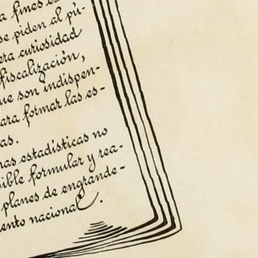 a fines es
se piden al pú-
era curiosidad
fiscalización,
que son indispen-
para formar las es-
as.
nas estadísticas no
sible formular y rea-
planes de engrande-
iento nacional.